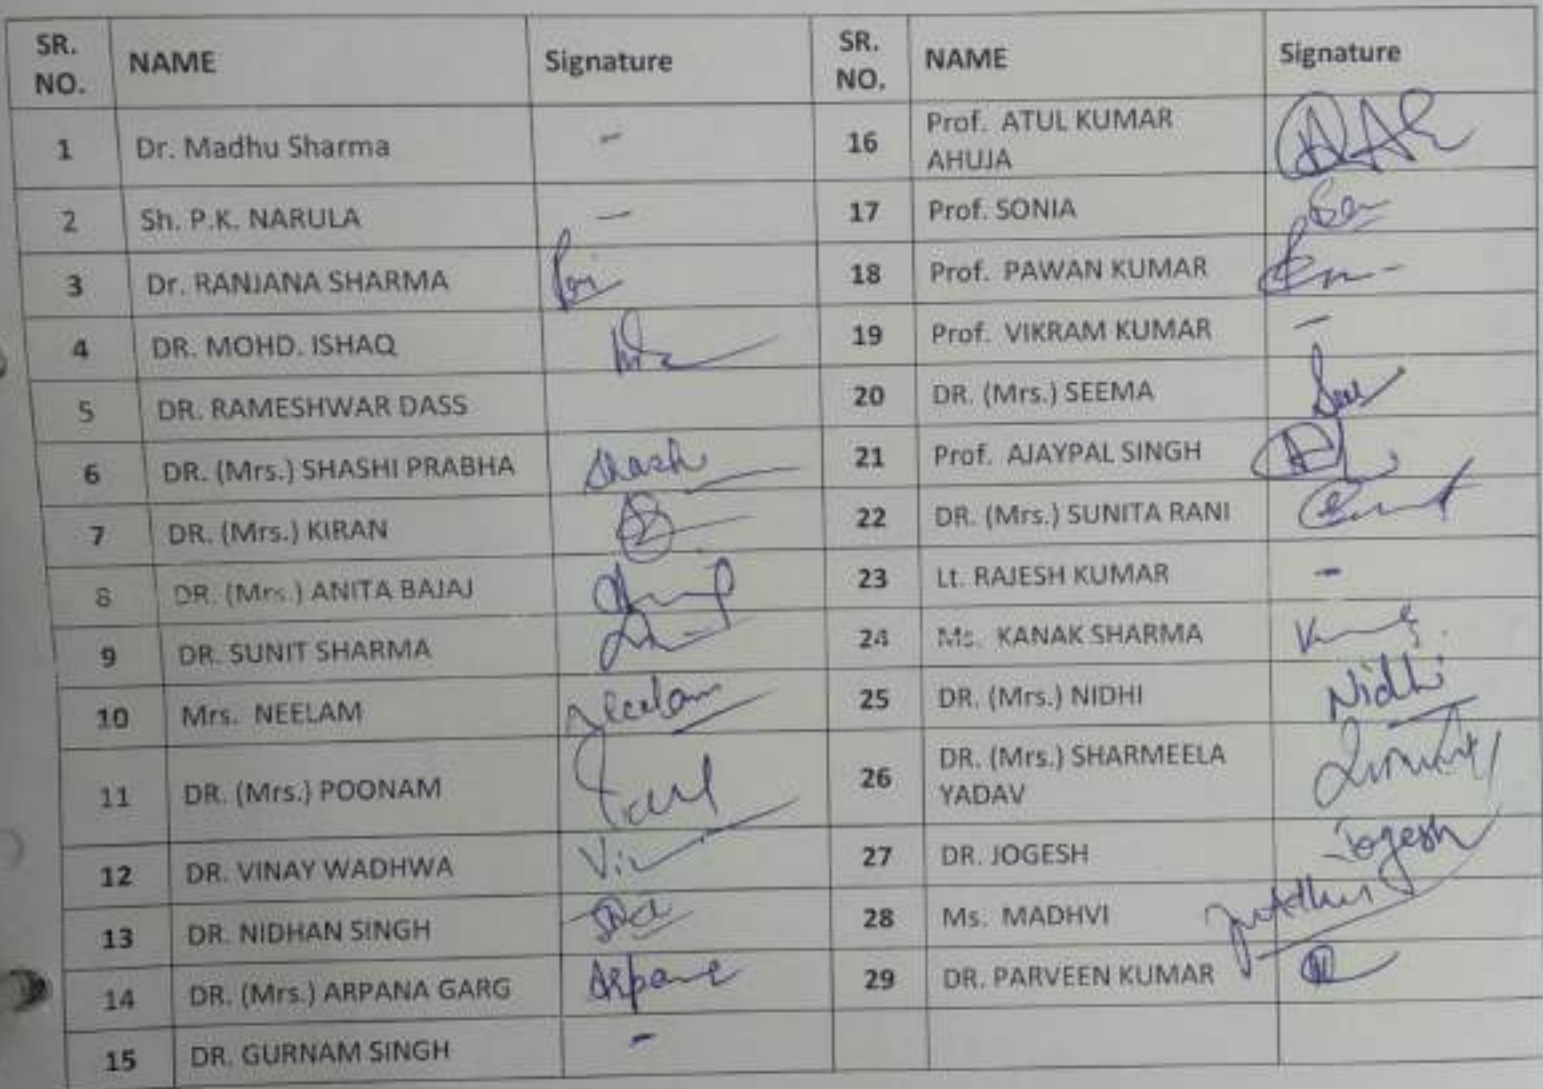 SR. NO. NAME Signature SR. NO. NAME Signature
1 Dr. Madhu Sharma - 16 Prof. ATUL KUMAR AHUJA
2 Sh. P.K. NARULA - 17 Prof. SONIA
3 Dr. RANJANA SHARMA 18 Prof. PAWAN KUMAR
4 DR. MOHD. ISHAQ 19 Prof. VIKRAM KUMAR -
5 DR. RAMESHWAR DASS 20 DR. (Mrs.) SEEMA
6 DR. (Mrs.) SHASHI PRABHA Shash 21 Prof. AJAYPAL SINGH
7 DR. (Mrs.) KIRAN 22 DR. (Mrs.) SUNITA RANI
8 DR. (Mrs.) ANITA BAJAJ 23 Lt. RAJESH KUMAR -
9 DR. SUNIT SHARMA 24 Ms. KANAK SHARMA
10 Mrs. NEELAM Neelam 25 DR. (Mrs.) NIDHI Nidhi
11 DR. (Mrs.) POONAM 26 DR. (Mrs.) SHARMEELA YADAV
12 DR. VINAY WADHWA 27 DR. JOGESH Jogesh
13 DR. NIDHAN SINGH 28 Ms. MADHVI
14 DR. (Mrs.) ARPANA GARG Arpana 29 DR. PARVEEN KUMAR
15 DR. GURNAM SINGH -